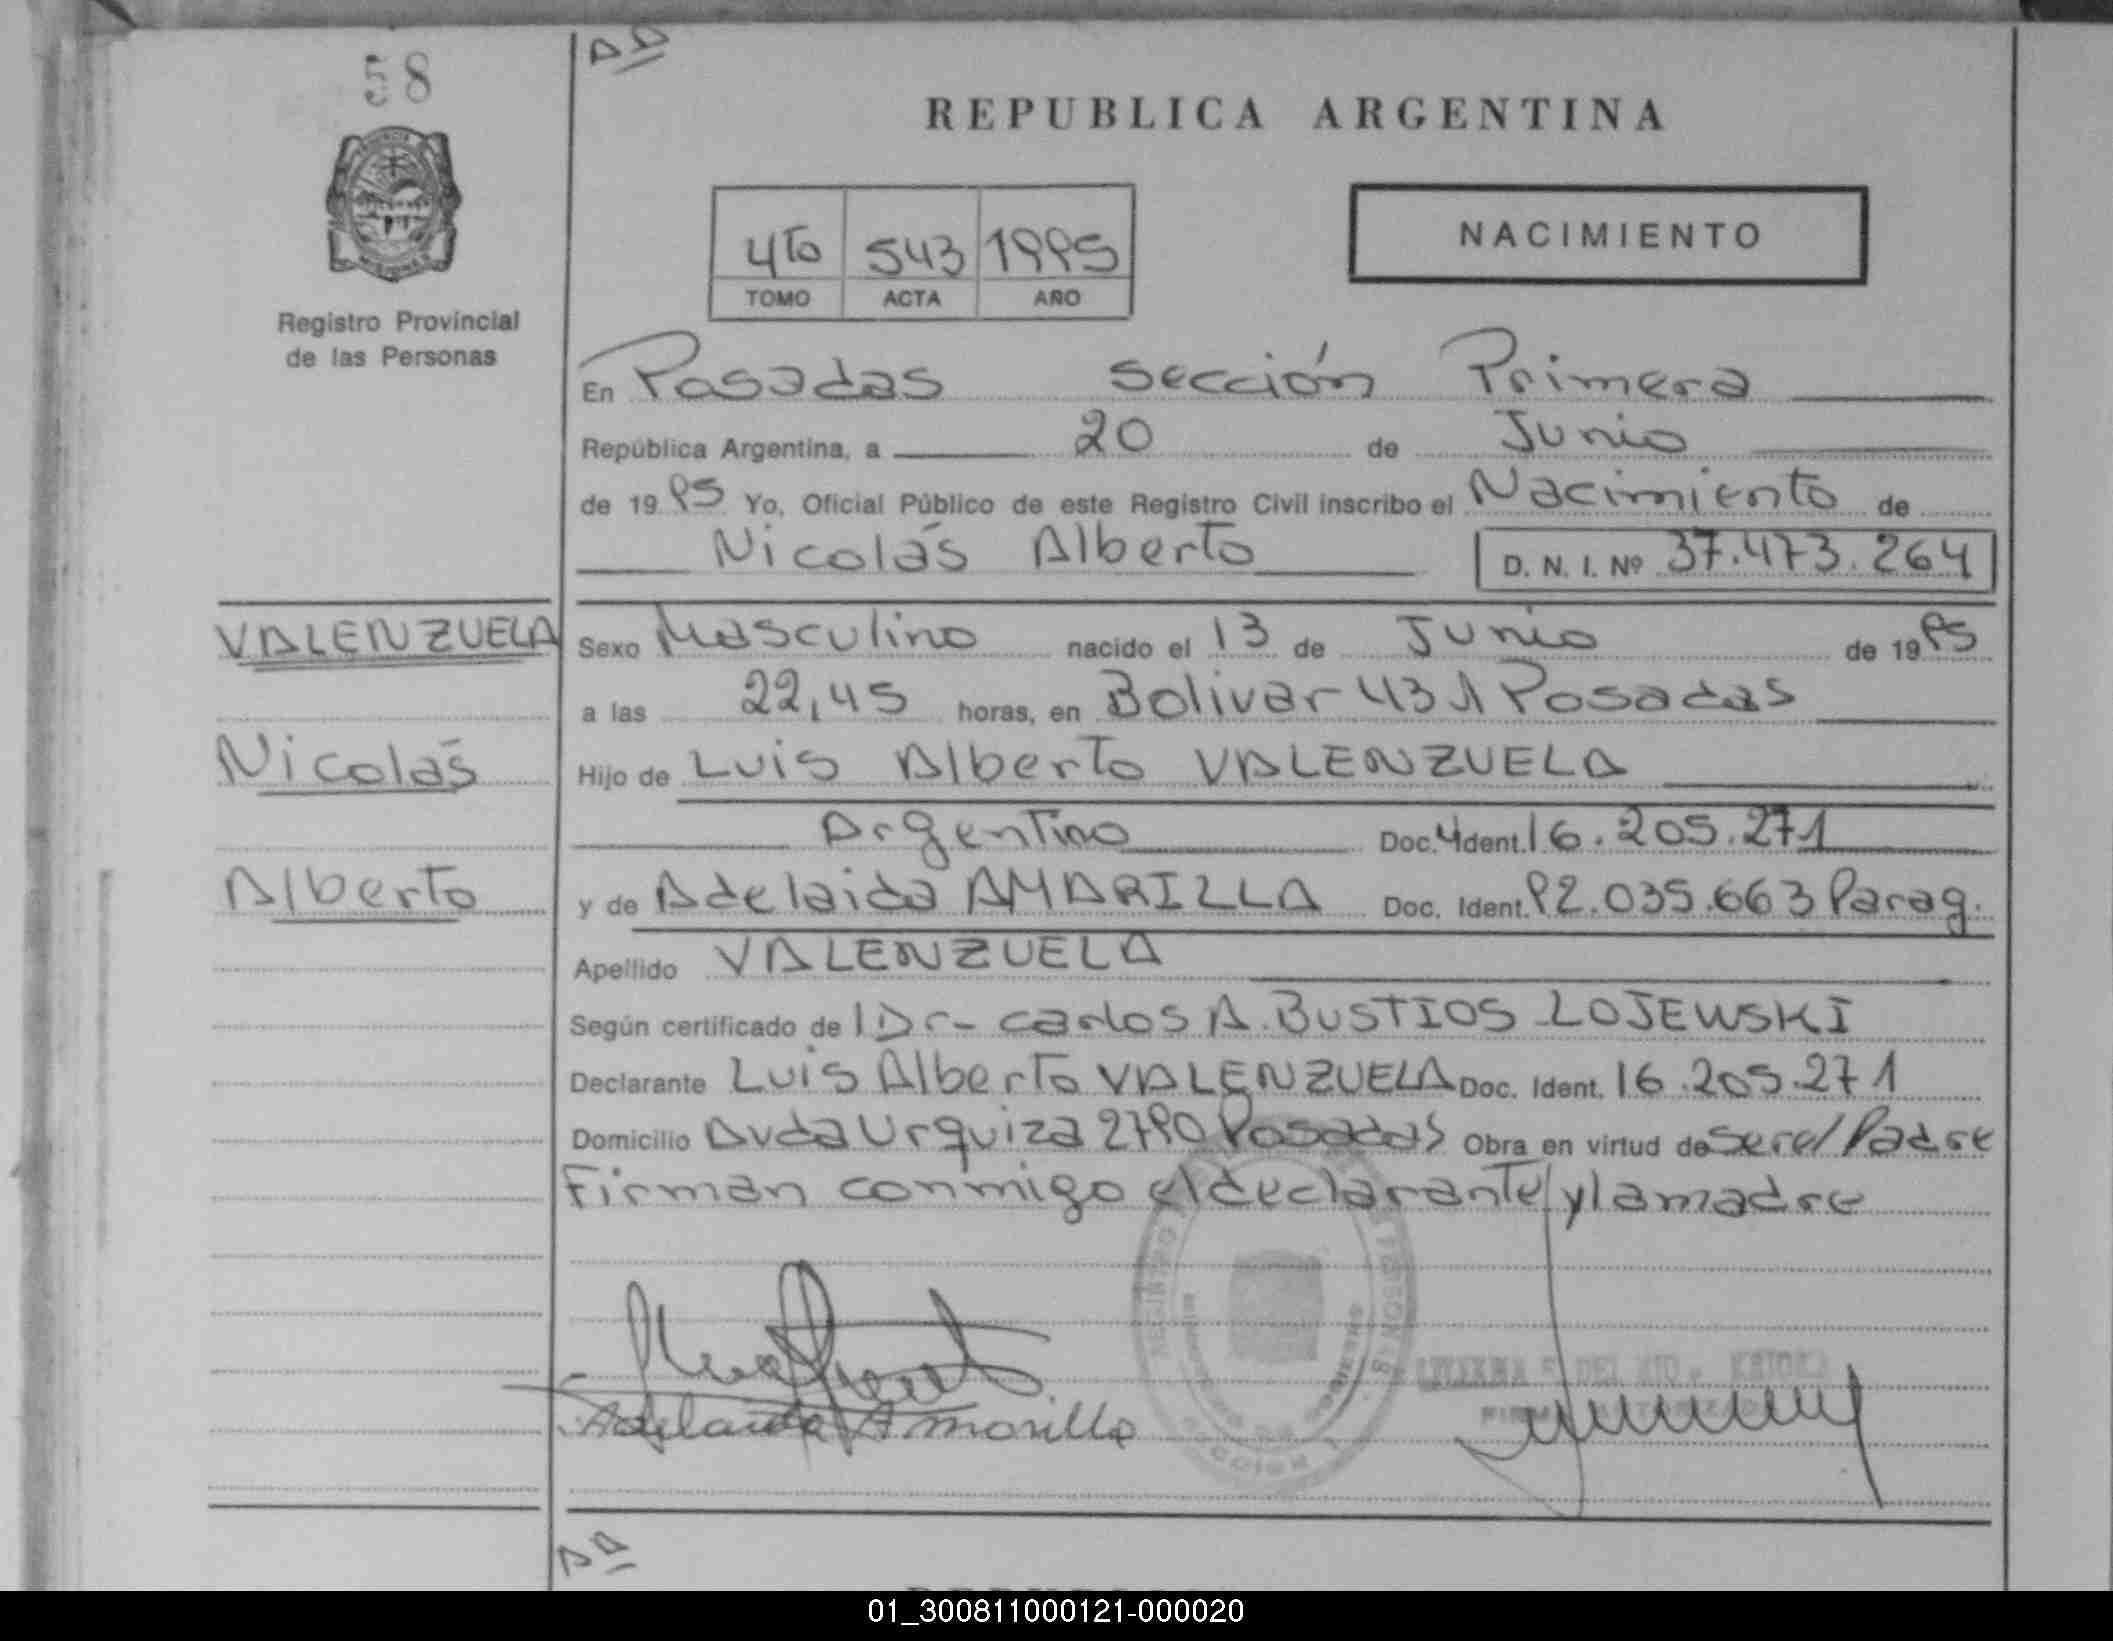 58
REPUBLICA ARGENTINA
4to 543 1995
TOMO ACTA AÑO
NACIMIENTO
Registro Provincial
de las Personas
En Posadas sección Primera
República Argentina, a 20 de Junio
de 1995 Yo, Oficial Público de este Registro Civil inscribo el Nacimiento de
Nicolás Alberto D. N. I. Nº 37.473.264
VALENZUELA
Nicolás
Alberto
Sexo Masculino nacido el 13 de Junio de 1995
a las 22,45 horas, en Bolivar 431 Posadas
Hijo de Luis Alberto VALENZUELA
Argentino Doc. Ident. 16.205.271
y de Adelaida AMARILLA Doc. Ident. 92.035.663 Parag.
Apellido VALENZUELA
Según certificado de l Dr- Carlos A. BUSTIOS LOJEWSKI
Declarante Luis Alberto VALENZUELA Doc. Ident. 16.205.271
Domicilio Avda Urquiza 2790 Posadas Obra en virtud de ser el Padre
Firman conmigo el declarante y la madre
Adelaida Amarilla
FIRMA AUTORIZADA
01_300811000121-000020